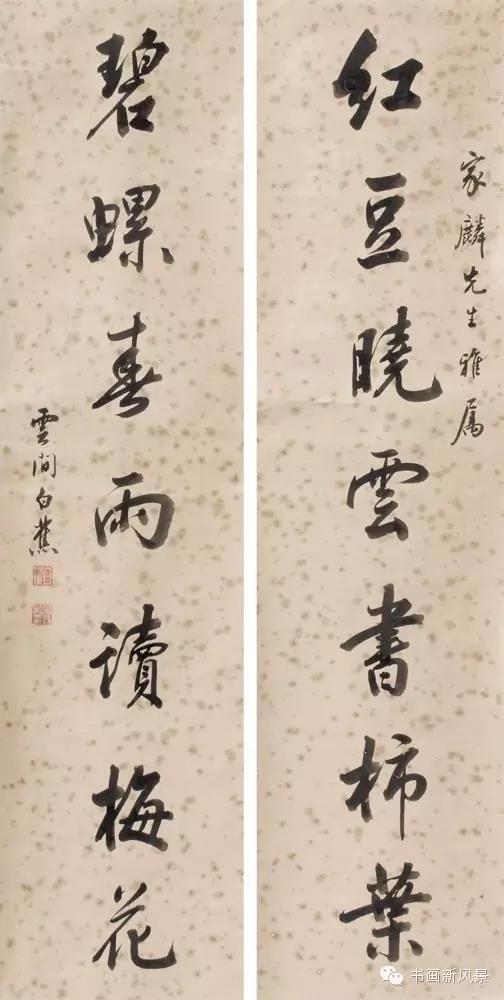 家麟先生雅属
红豆曉雲書柿葉
碧螺春雨讀梅花
雲間白蕉
书画新风景